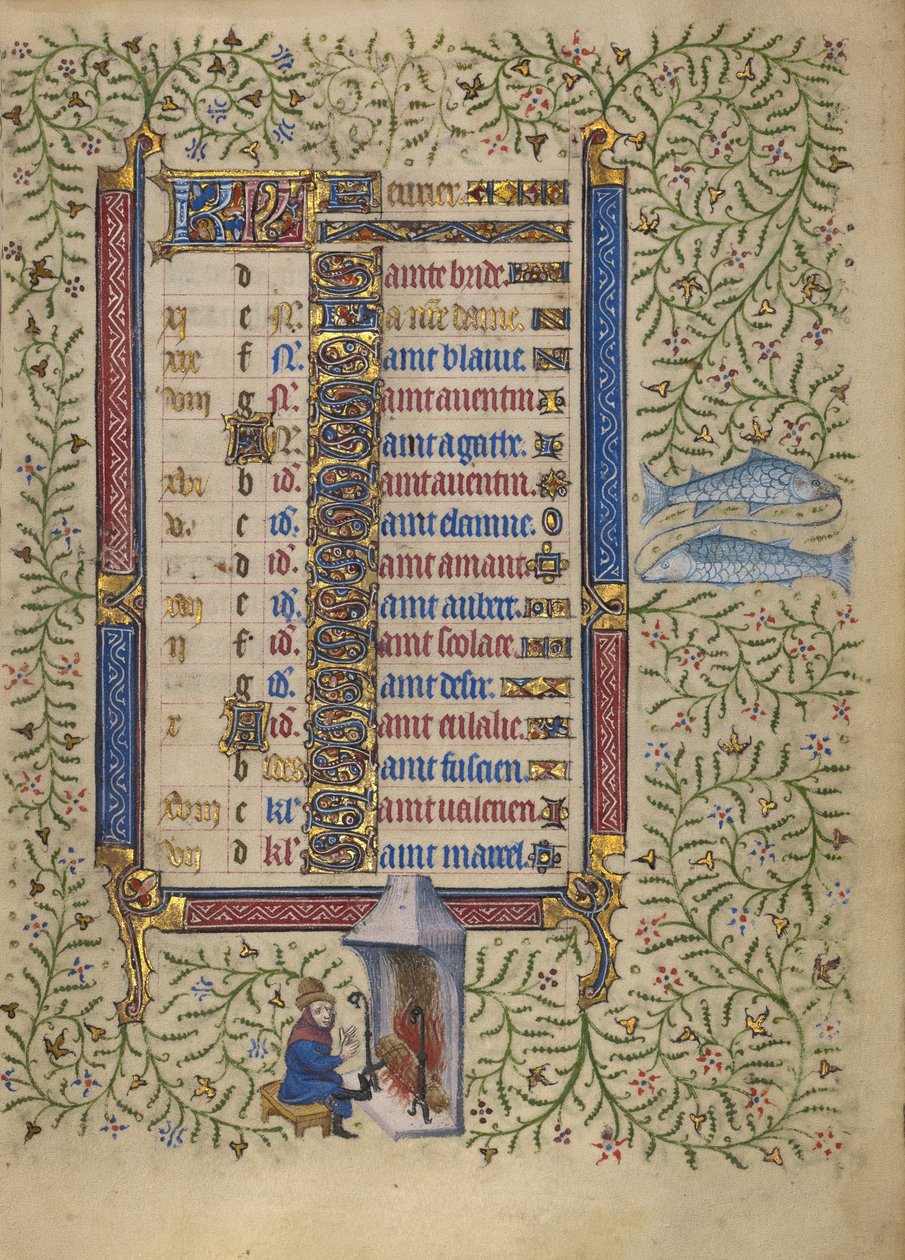 KL Feurier.
d Sainte bride.
xi e N. La nr̃e dame.
xix f N. Saint blaiue.
viii g N. Saint auentin
A N. Saint agathe.
xvi b id. Saint auentin.
v. c id. Saint elaine.
d id. Saint amant.
xiii e id. Saint aubert.
ii f id. Saint scolace.
g id. Saint desir.
x A id. Saint eulalie.
b ides Saint fuscien.
xviii c kl. Saint ualenen
vii d kl. Saint marcel.